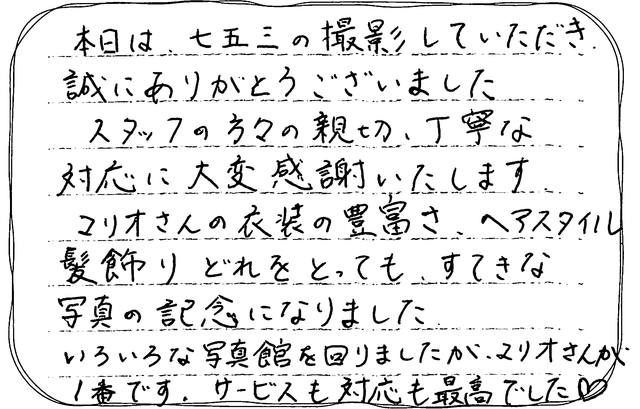 本日は、七五三の撮影していただき
誠にありがとうございました
スタッフの方々の親切、丁寧な
対応に大変感謝いたします
マリオさんの衣装の豊富さ、ヘアスタイル
髪飾り どれをとっても、すてきな
写真の記念になりました
いろいろな写真館を回りましたが、マリオさんが
1番です。サービスも対応も最高でした♡